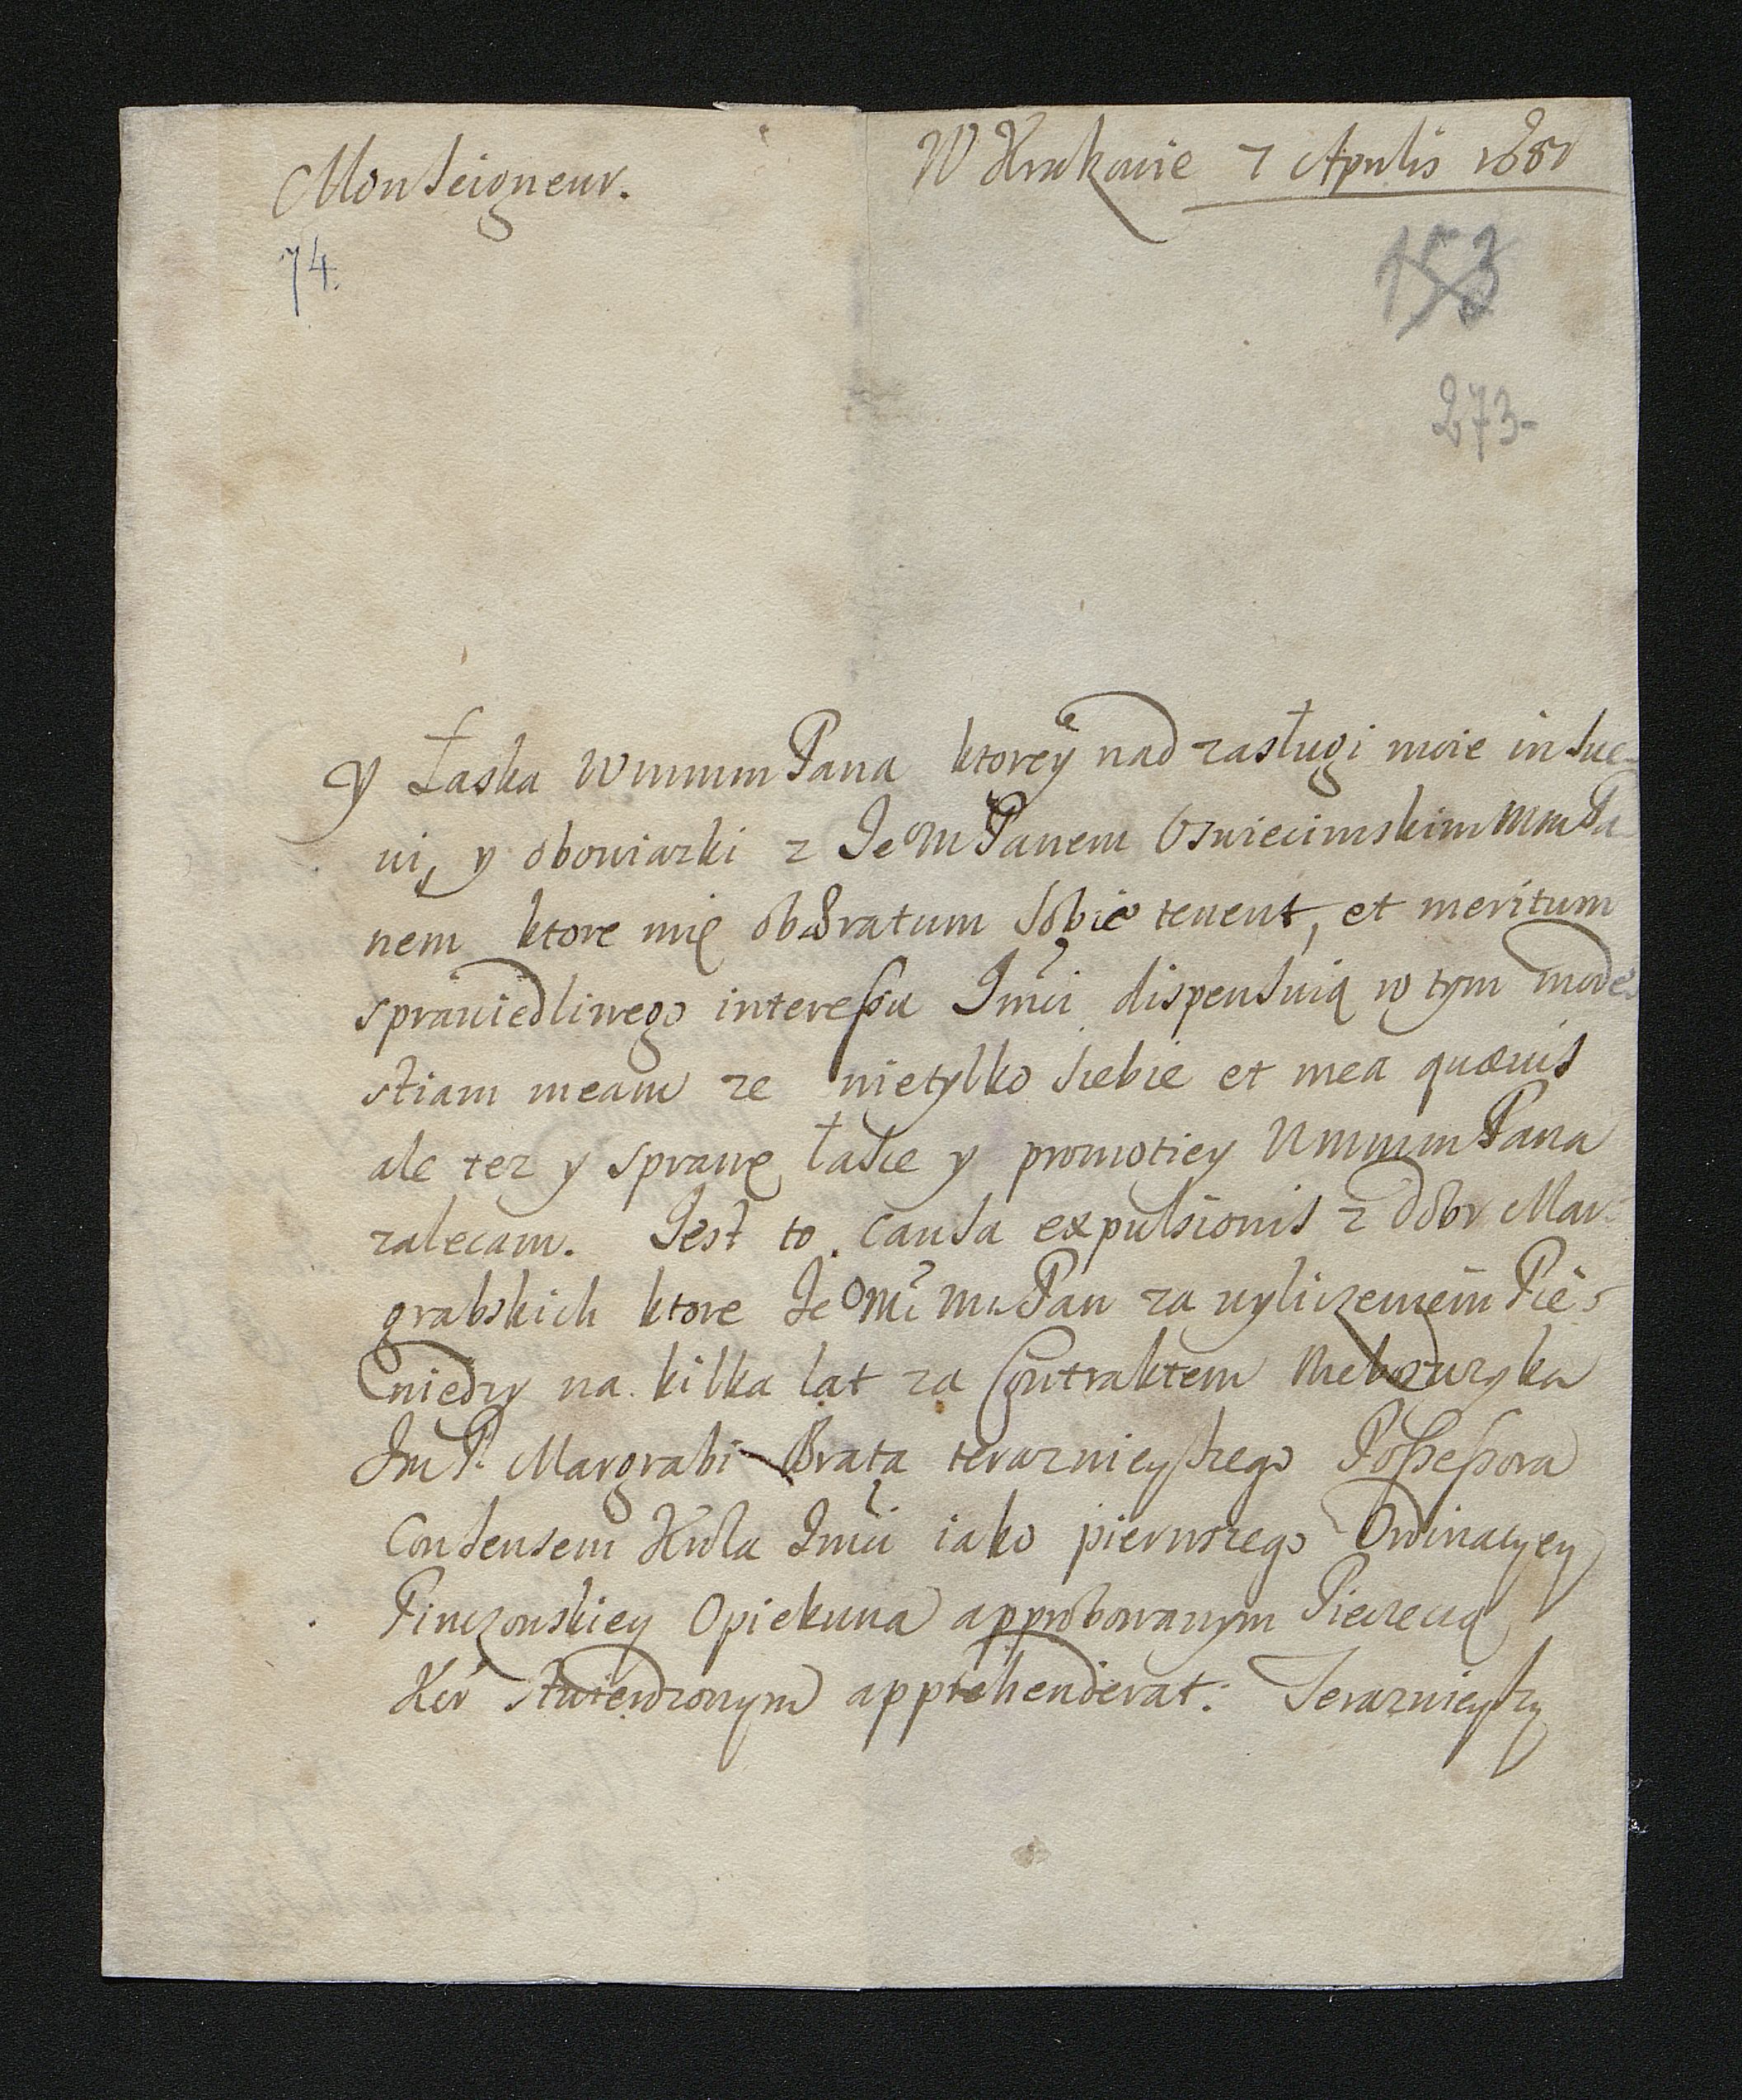 Monseigneur.
W Krakowie 7 Aprilis 1681
74.
153
273-
Y Łaska WmmmPana ktorey nad zasługi moie insue-
vi, y obowiazki z JeoMPanem Oswiecimskim MmPa
nem ktore mię obseratum sobie tenent, et meritum
sprawiedliwego interessu Jmći dispensuią w tym mode-
stiam meam ze nietylko siebie et mea quævis
ale tez y sprawę łasce y promotiey WmmmPana
zalecam. Jest to causa expulsionis z dobr Mar-
grabskich ktore JeoMć mPan za wyliczeniem Pie-
niędzy na kilka lat za Contraktem
JmP. Margrabi Brata teraznieyszego Possessora
Consensem Krola Jmći iako pierwszego Ordinacyey
Pinczowskiey Opiekuna approbowanym Pieczecią
Kor stwierdzonym apprehenderat: Terazniejszy